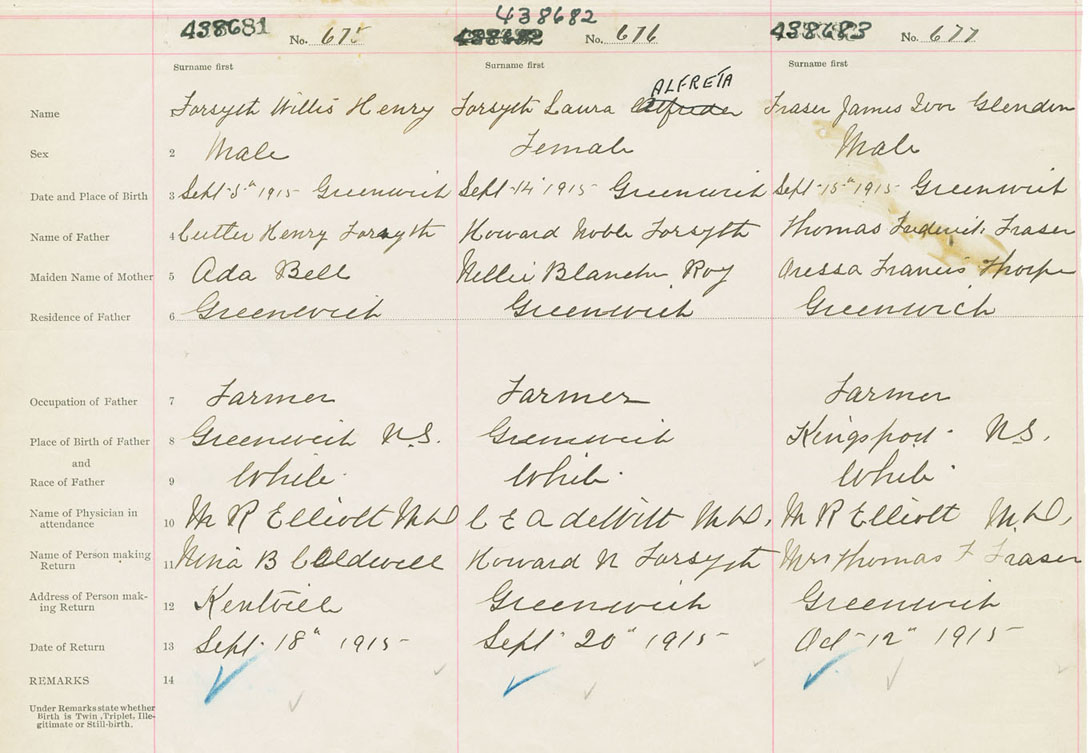 438681 No. 675 438682 438682 No. 676 438683 No. 677
Surname first Surname first Surname first
ALFRETA
Name 1 Forsyth Willis Henry Forsyth Laura Alfreda Fraser James Ivor Glendon
Sex 2 Male Female Male
Date and Place of Birth 3 Sept 5th 1915 Greenwich Sept 14" 1915 Greenwich Sept 15th 1915 Greenwich
Name of Father 4 Cutler Henry Forsyth Howard Noble Forsyth Thomas Frederick Fraser
Maiden Name of Mother 5 Ada Bell Nellie Blanche Roy Aressa Francis Thorpe
Residence of Father 6 Greenwich Greenwich Greenwich
Occupation of Father 7 Farmer Farmer Farmer
Place of Birth of Father 8 Greenwich N.S. Greenwich Kingsport N.S.
and
Race of Father 9 White White White
Name of Physician in
attendance 10 M R Elliott M.D C E A deWitt M.D. M R Elliott M.D.
Name of Person making
Return 11 Nina B Caldwell Howard N Forsyth Mrs Thomas F Fraser
Address of Person mak-
ing Return 12 Kentville Greenwich Greenwich
Date of Return 13 Sept 18" 1915 Sept 20" 1915 Oct 12" 1915
REMARKS 14
Under Remarks state whether
Birth is Twin, Triplet, Ille-
gitimate or Still-birth.